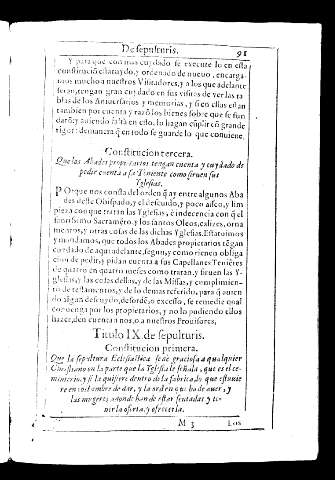 De sepulturis. 91
Y para que con mas cuydado se execute lo en esta
constituciõ estatuydo, y ordenado de nueuo, encarga-
mos mucho a nuestros Visitadores, y a los que adelante
seran, tengan gran cuydado en sus visitas de ver las ta
blas de los Aniuersarios y memorias, y si en ellas estan
tambien por cuenta y razõ los bienes sobre que se fun
daró; y auiendo falta en esto, lo hagan cũplir cõ grande
rigor: de manera q̃ en todo se guarde lo que conuiene.
Constitucion tercera.
Que los Abades proprietarios tengan cuenta y cuydado de
pedir cuenta a su Teniente como siruen sus
Yglesias.
POrque nos consta del orden q̃ ay entre algunos Aba
des deste Obispado, y el descuido, y poco aseo, y lim
pieza con que tratan las Yglesias, è indecencia con q̃ el
santissimo Sacramẽto, y los santos Oleos, calizes, orna
mentos, y otras cosas de las dichas Yglesias. Estatuimos
y mandamos, que todos los Abades propietarios tẽgan
cuydado de aqui adelante, segun, y como tienen obliga
cion de pedir, y pidan cuenta a sus Capellanes Teniẽtes
de quatro en quatro meses como tratan, y siruen las Y-
glesias, y las cosas dellas, y de las Missas, y cumplimien-
to de testamẽtos, y de lo demas referido, para q̃ auien
do algun descuydo, desordẽ, o excesso, se remedie qual
conuenga por los proprietarios, y no lo pudiendo ellos
hazer, den cuenta a nos, o a nuestros Prouisores.
Titulo IX. de sepulturis.
Constitucion primera.
Que la sepultura Ecclesiastica se dè graciosa a qualquier
Christiano en la parte que la Yglesia le señala, que es el ce-
menterio, y si la quisiere dentro de la fabrica, lo que estuuie
re en costumbre de dar, y la orden que ha de auer, y
las mugeres adonde han de estar sentadas y te-
nir la oferta, y ofrecerla.
M 3 Los